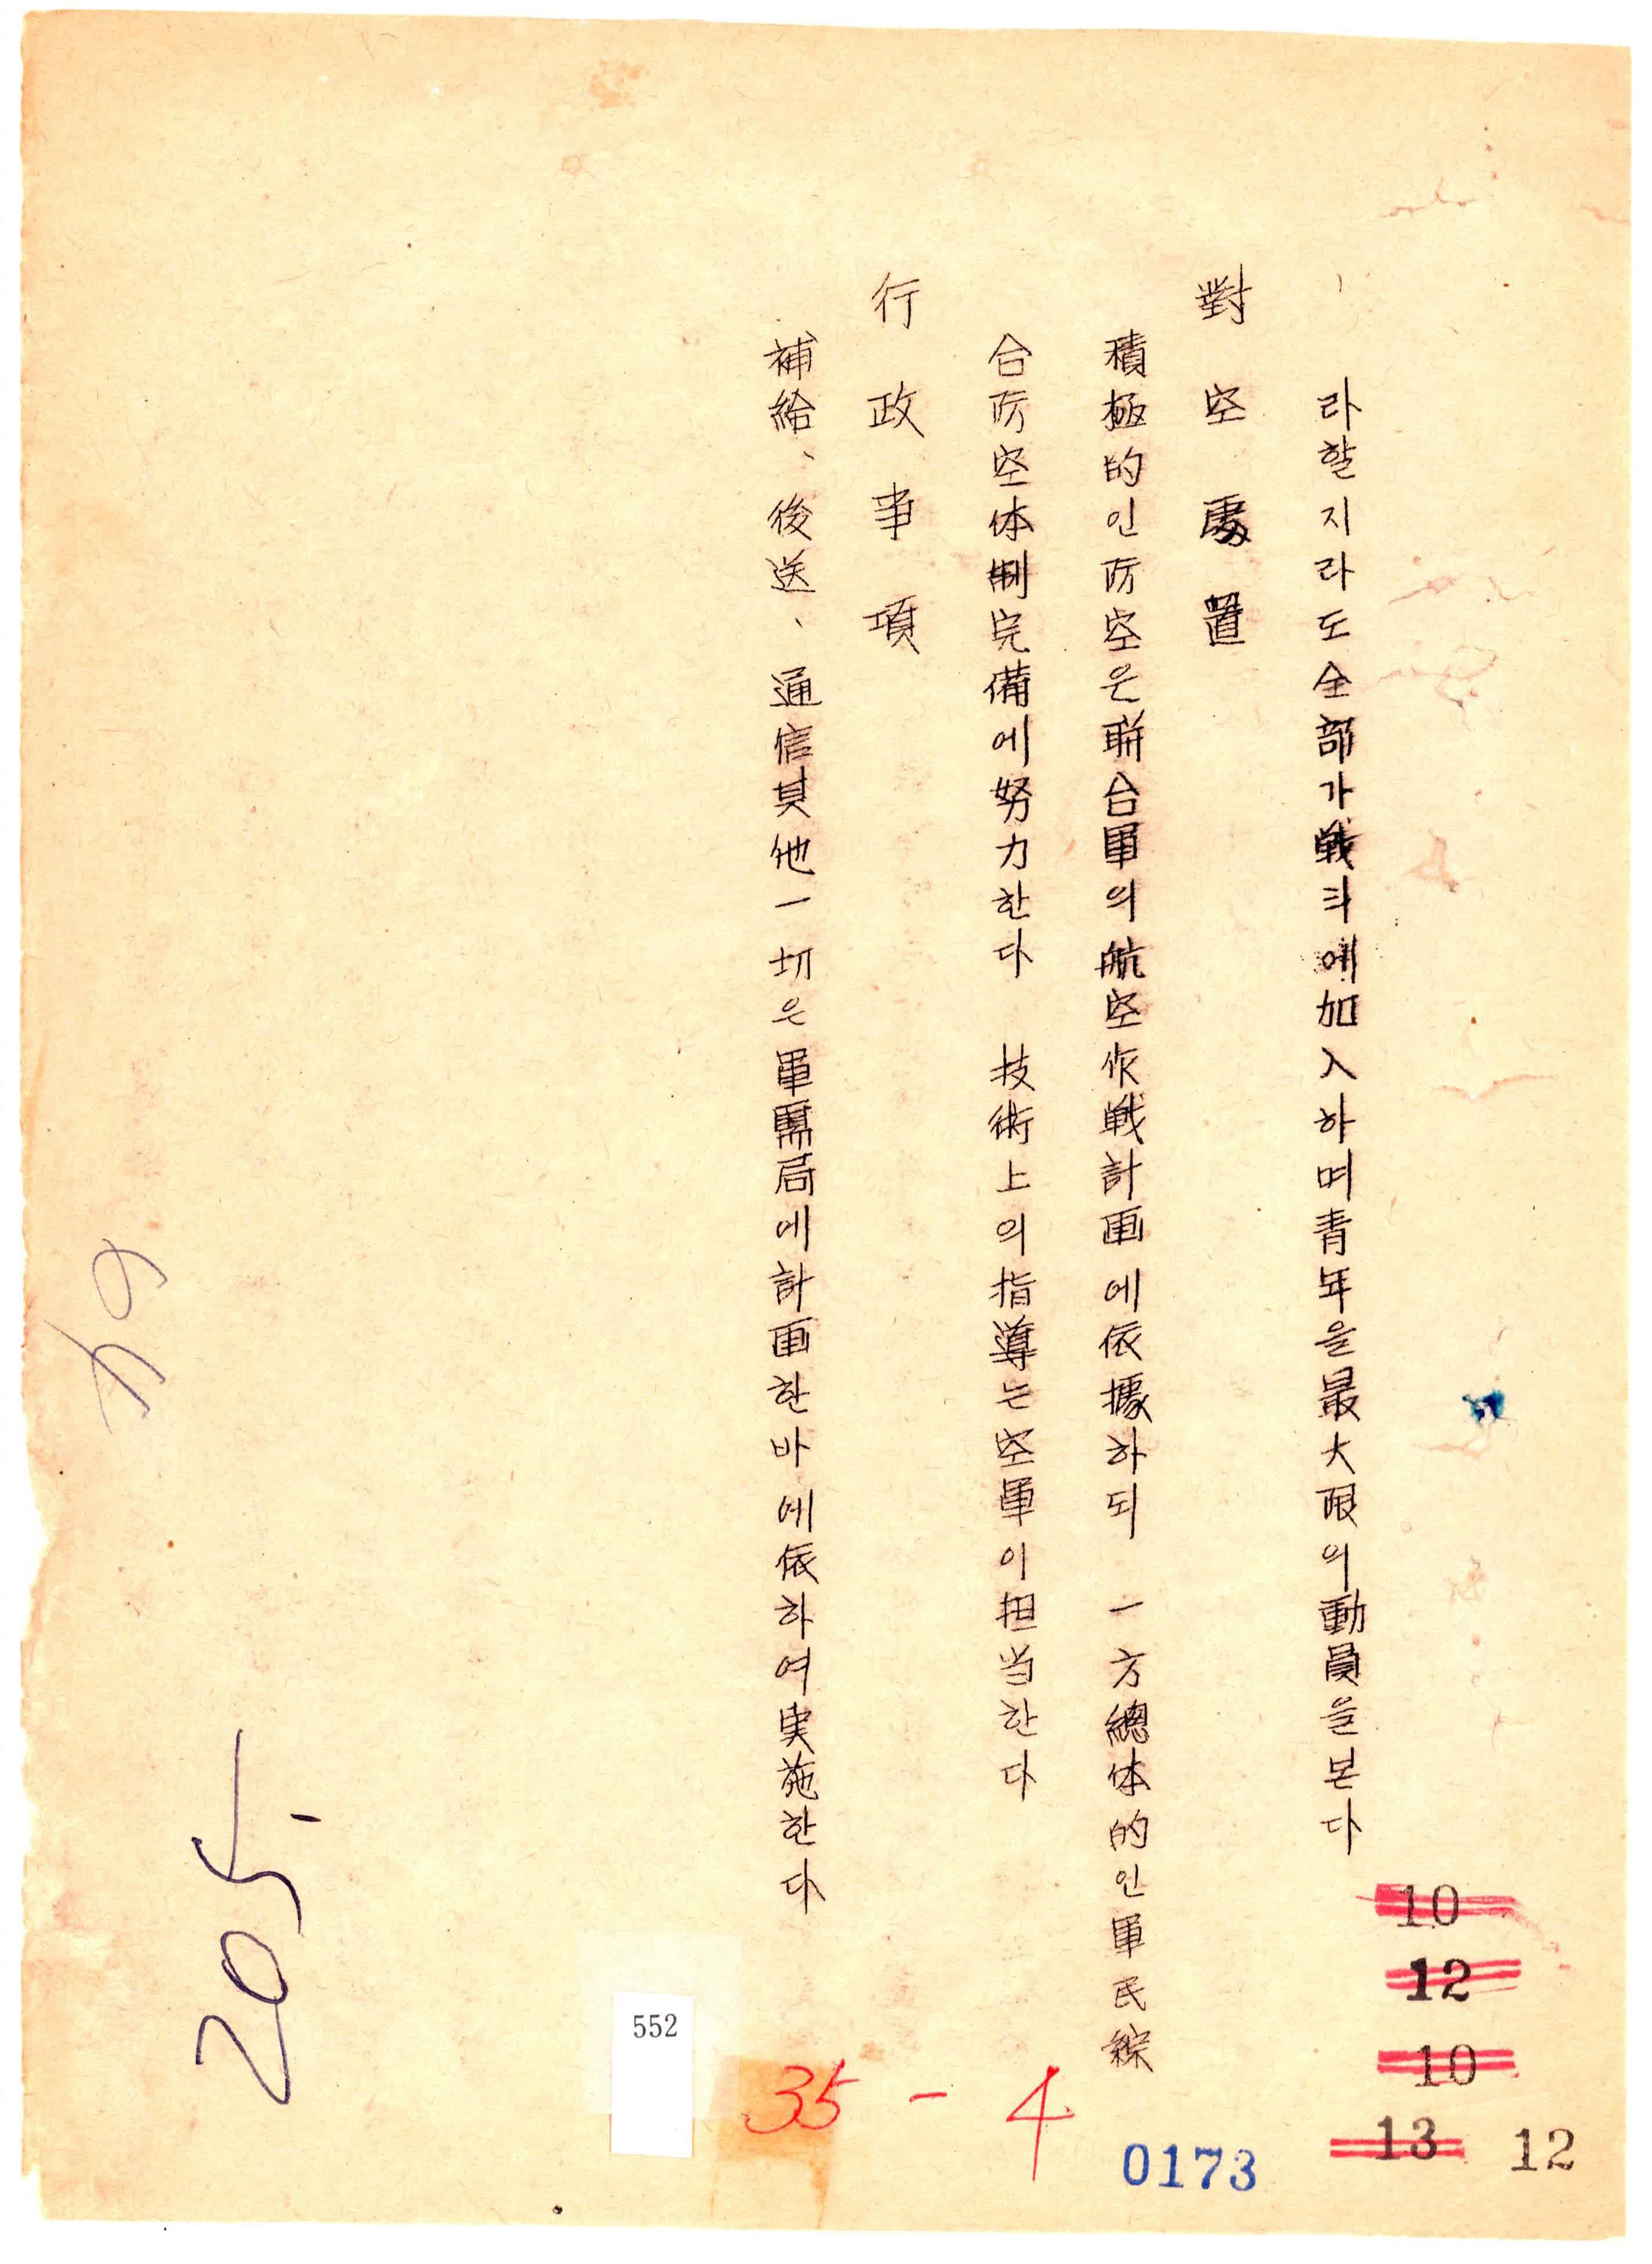 라할지라도全部가戦斗에加入하며青年을最大限의動員을본다
對空處置
積極的인防空은聯合軍의航空作戦計画에依據하되 一方總体的인軍民綜
合防空体制完備에努力한다 技術上의指導는空軍이担当한다
行政事項
補給、後送、通信其他一切은軍務局에計画한바에依하여実施한다
10
12
10
13 12
0173
35-4
552
205.